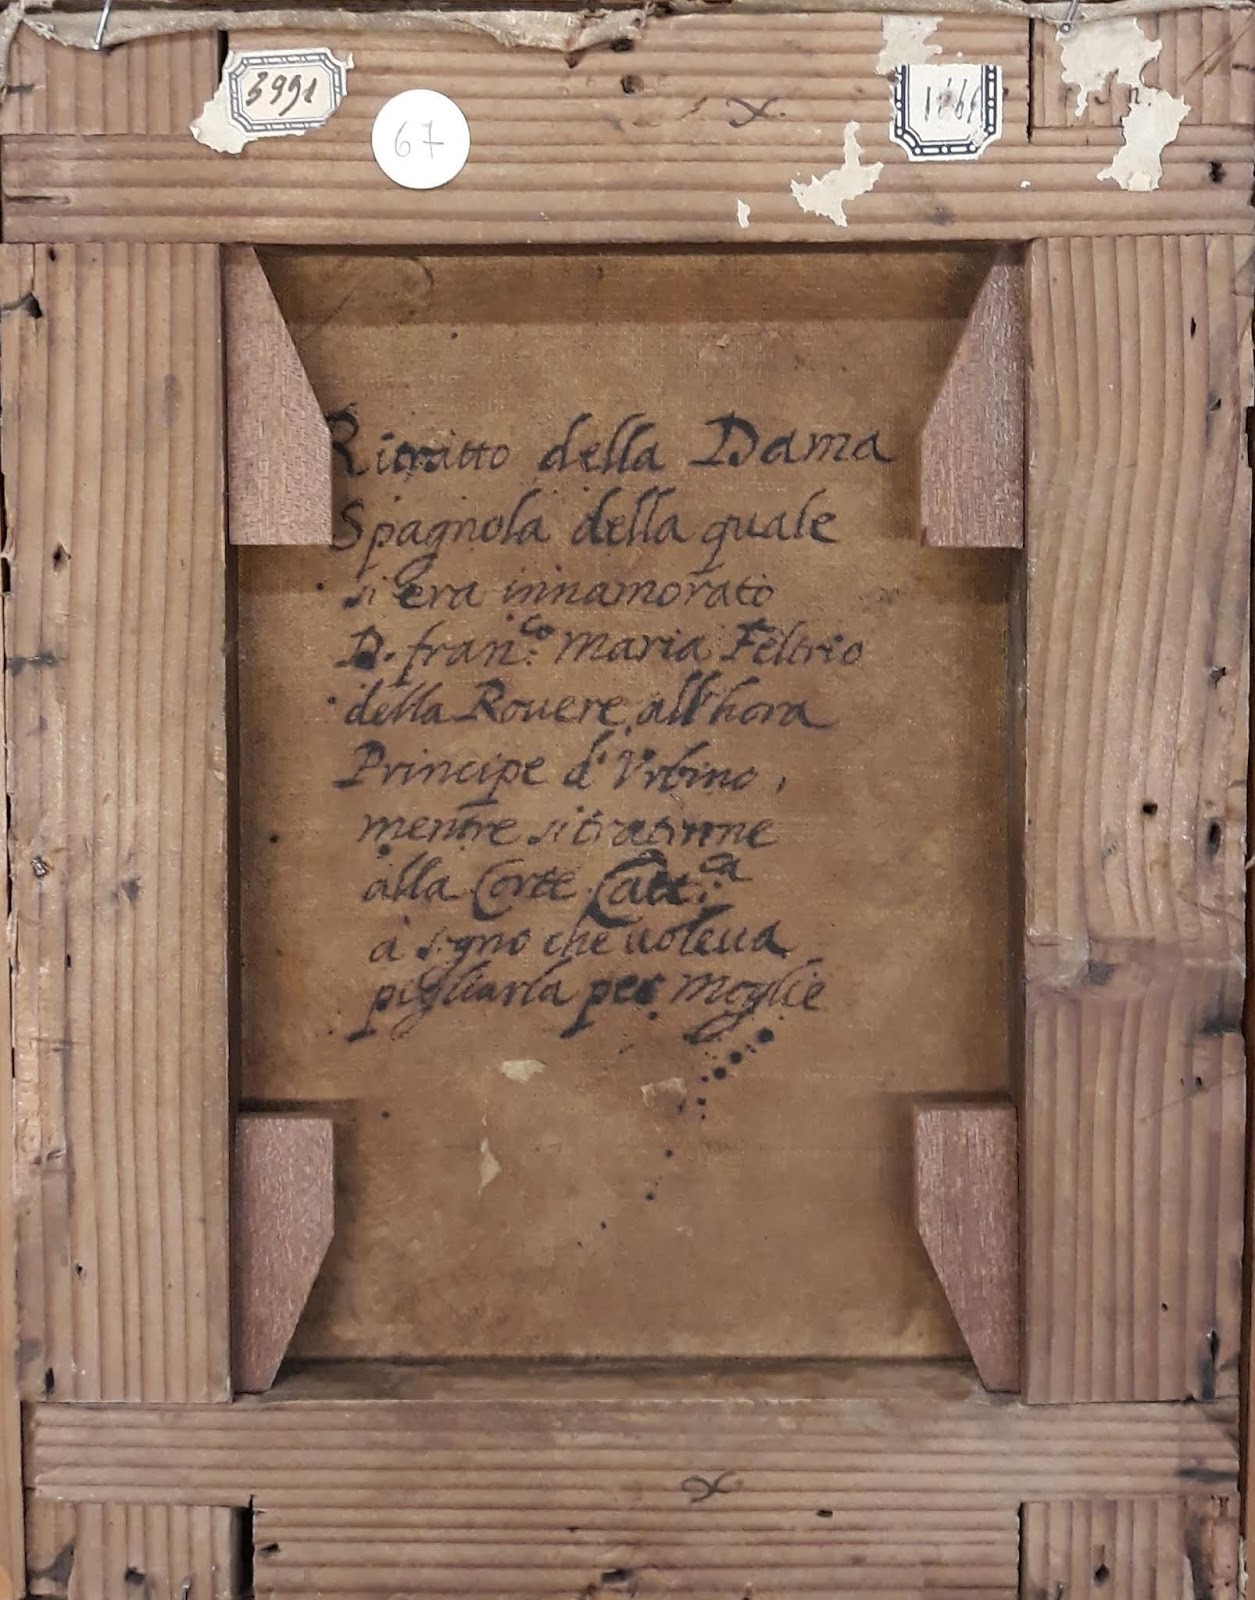 3991
67
Ritratto della Dama
Spagnola della quale
si era innamorato
D. fran.co Maria Feltrio
della Rouere all'hora
Principe d'Vrbino,
mentre si trattenne
alla Corte Catt.ca
à segno che uoleua
pigliarla per Moglie